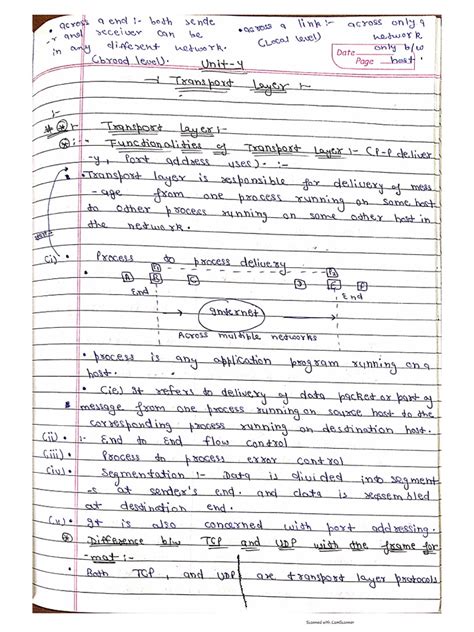 • across a end :- both sende
-r and receiver can be
in any different network.
(broad level).
• across a link :- across only 1
(Local level) network
only b/w
host.
Date
Page
Unit-4
Transport Layer :-
Transport Layer :-
Functionalities of Transport Layer :- (P-P deliver
-y, Port address uses). :-
• Transport layer is responsible for delivery of mess
-age from one process running on some host
to other process running on some other host in
the network.
(i) • Process to process delivery
A B C
D E F
End
End
Internet
Across multiple networks
• process is any application program running on a
host.
• (ie) It refers to delivery of data packet or part of
message from one process running on source host to the
corresponding process running on destination host.
(ii) • :- End to End flow control
(iii) • Process to process error control
(iv) • Segmentation :- Data is divided into segment
-s at sender's end. and data is reassembled
at destination end.
(v) • It is also concerned with port addressing.
Difference b/w TCP and UDP with the frame for
-mat :-
• Both TCP, and UDP are transport layer protocols
Scanned with CamScanner